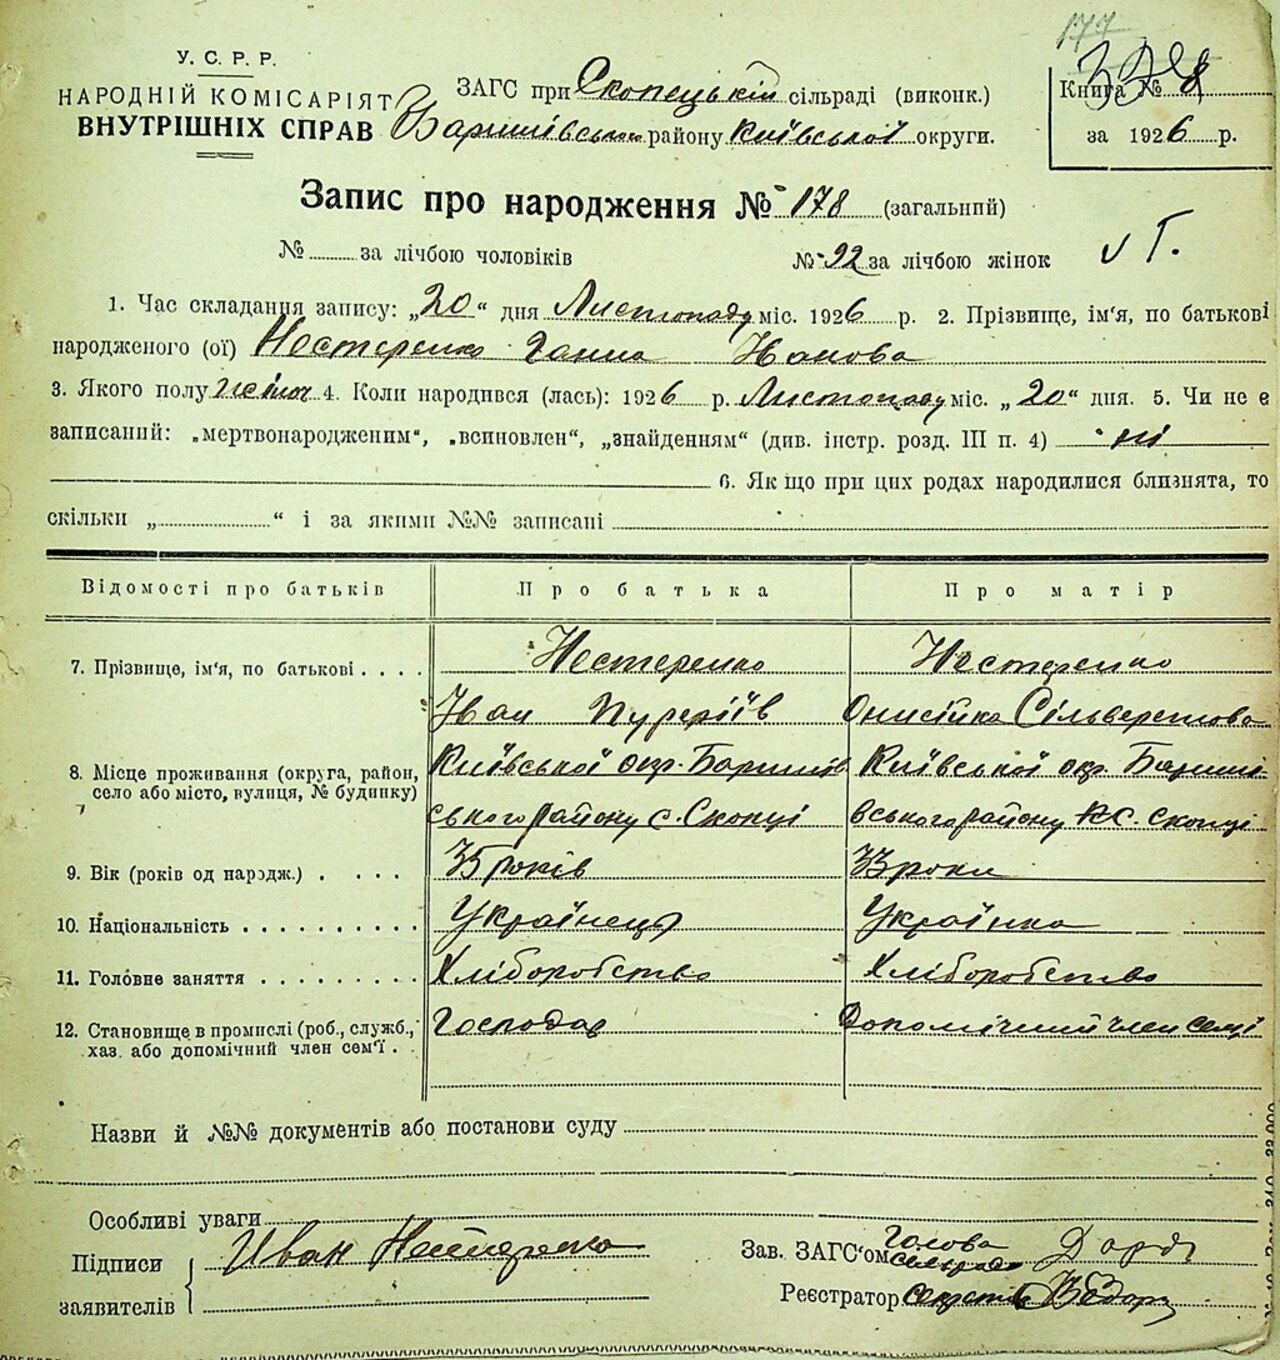 177
У. С. Р. Р.
НАРОДНІЙ КОМІСАРІЯТ
ВНУТРІШНІХ СПРАВ
ЗАГС при Скопецькій сільраді (виконк.)
Баришівського району Київської округи.
Книга №
за 1926 р.
Запис про народження № 178 (загальний)
№ за лічбою чоловіків № 92 за лічбою жінок
1. Час складання запису: „20“ дня Листопаду міс. 1926 р. 2. Прізвище, ім‘я, по батькові
народженого (ої) Нестеренко Ганна Іванова
3. Якого полу жіноч 4. Коли народився (лась): 1926 р. Листопаду міс. „20“ дня. 5. Чи не є
записаний: „мертвонародженим“, „всиновлен“, „знайденням“ (див. інстр. розд. III п. 4) ні
6. Як що при цих родах народилися близнята, то
скільки „ “ і за якими №№ записані
Відомості про батьків Про батька Про матір
7. Прізвище, ім‘я, по батькові . . . . Нестеренко Нестеренко
Іван Онисійка
8. Місце проживання (округа, район, Київської окр. Баришів Київської окр. Бариші-
село або місто, вулиця, № будинку)
ського району с. Скопці вського району с. Скопці
9. Вік (років од народж.) . . . . 35 років 33 роки
10. Національність . . . . . . . . . . Українець Українка
11. Головне заняття . . . . . . . . . Хліборобство Хліборобство
12. Становище в промислі (роб., служб., Господар Допомічний член семї
хаз. або допомічний член сем‘ї . .
Назви й №№ документів або постанови суду
Особливі уваги
Підписи
заявителів
Иван Нестеренко
Зав. ЗАГС‘ом Голова
сельради
Реєстратор